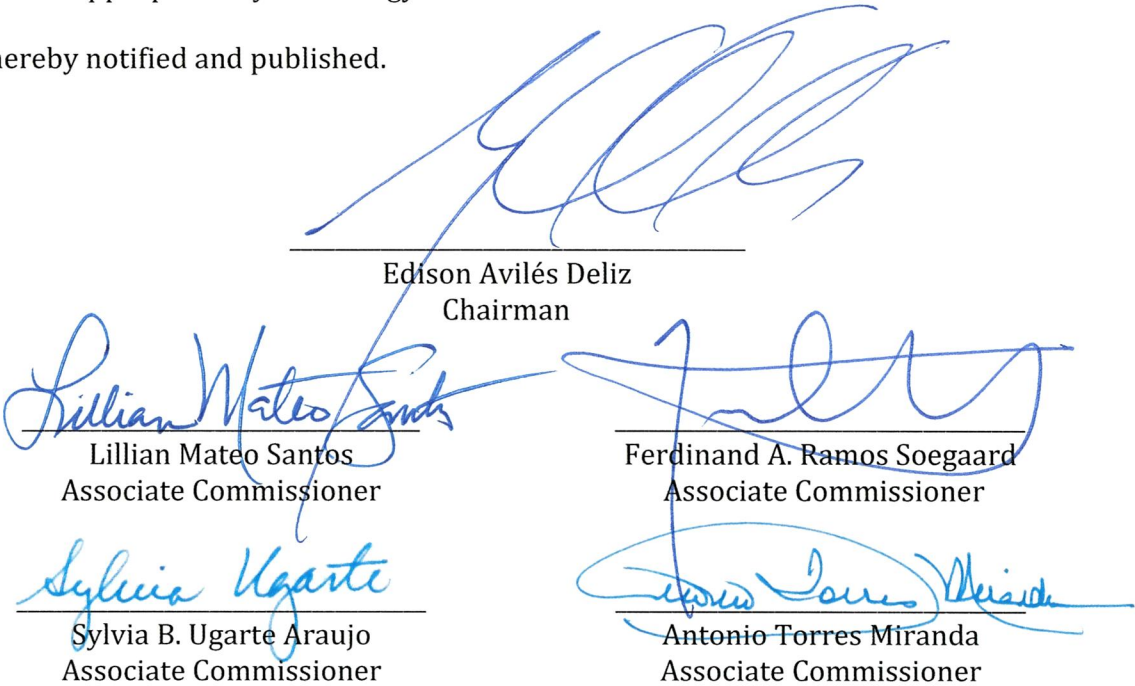 hereby notified and published.
Edison Avilés Deliz
Chairman
Lillian Mateo Santos
Lillian Mateo Santos
Associate Commissioner
Ferdinand A. Ramos Soegaard
Associate Commissioner
Sylvia Ugarte
Sylvia B. Ugarte Araujo
Associate Commissioner
Antonio Torres Miranda
Antonio Torres Miranda
Associate Commissioner